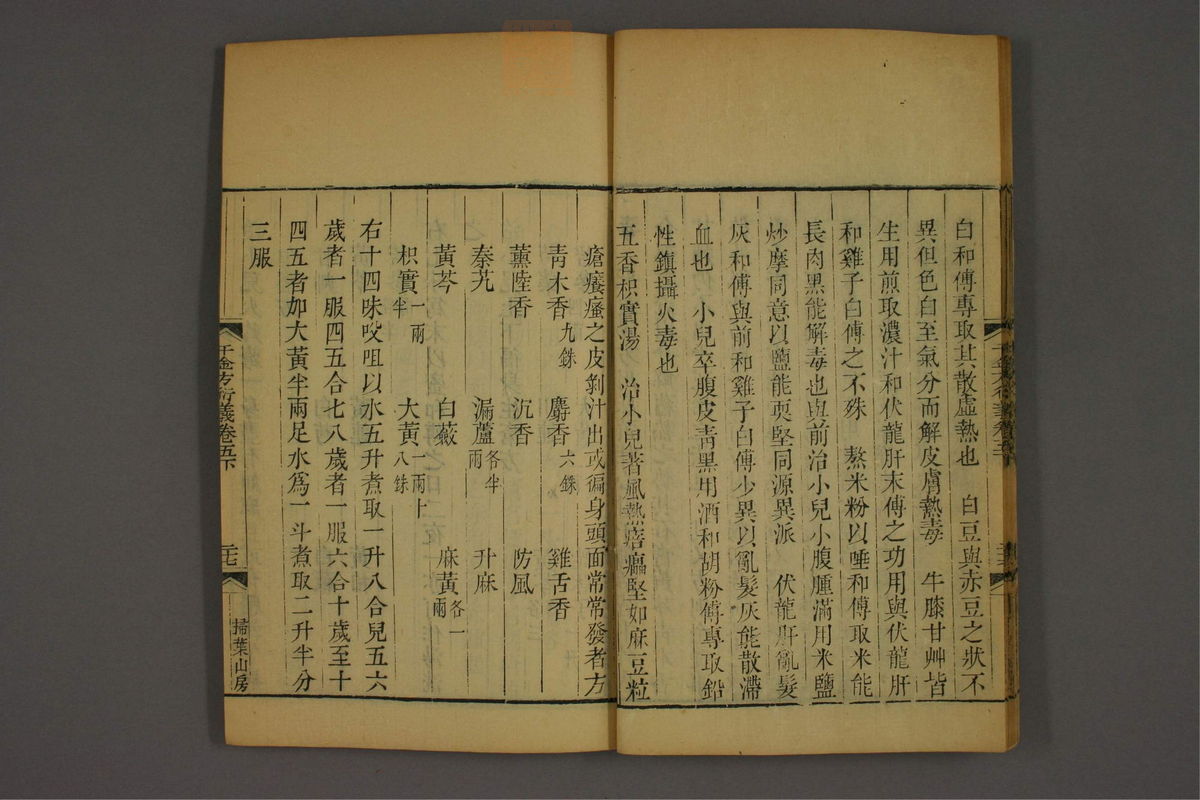 白和傅專取其散虛熱也　白豆與赤豆之狀不
異但色白至氣分而解皮膚熱毒　牛膝甘艸皆
生用煎取濃汁和伏龍肝末傅之功用與伏龍肝
和雞子白傅之不殊　熬米粉以唾和傅取米能
長肉黑能解毒也與前治小兒小腹腫滿用米鹽
炒摩同意以鹽能耎堅同源異派　伏龍肝亂髮
灰和傅與前和雞子白傅少異以亂髮灰能散滯
血也　小兒卒腹皮青黑用酒和胡粉傅專取鉛
性鎮攝火毒也
五香枳實湯　治小兒著風熱㾦癗堅如麻豆粒
瘡癢瘙之皮剝汁出或徧身頭面常常發者方
青木香九銖　麝香六銖　雞舌香
薰陸香　沉香　防風
秦艽　漏蘆各半兩　升麻
黃芩　白蘞　麻黃各一兩
枳實一兩半　大黃一兩十八銖
右十四味㕮咀以水五升煮取一升八合兒五六
歲者一服四五合七八歲者一服六合十歲至十
四五者加大黃半兩足水爲一斗煮取二升半分
三服
千金方衍義卷五下
二七
掃葉山房